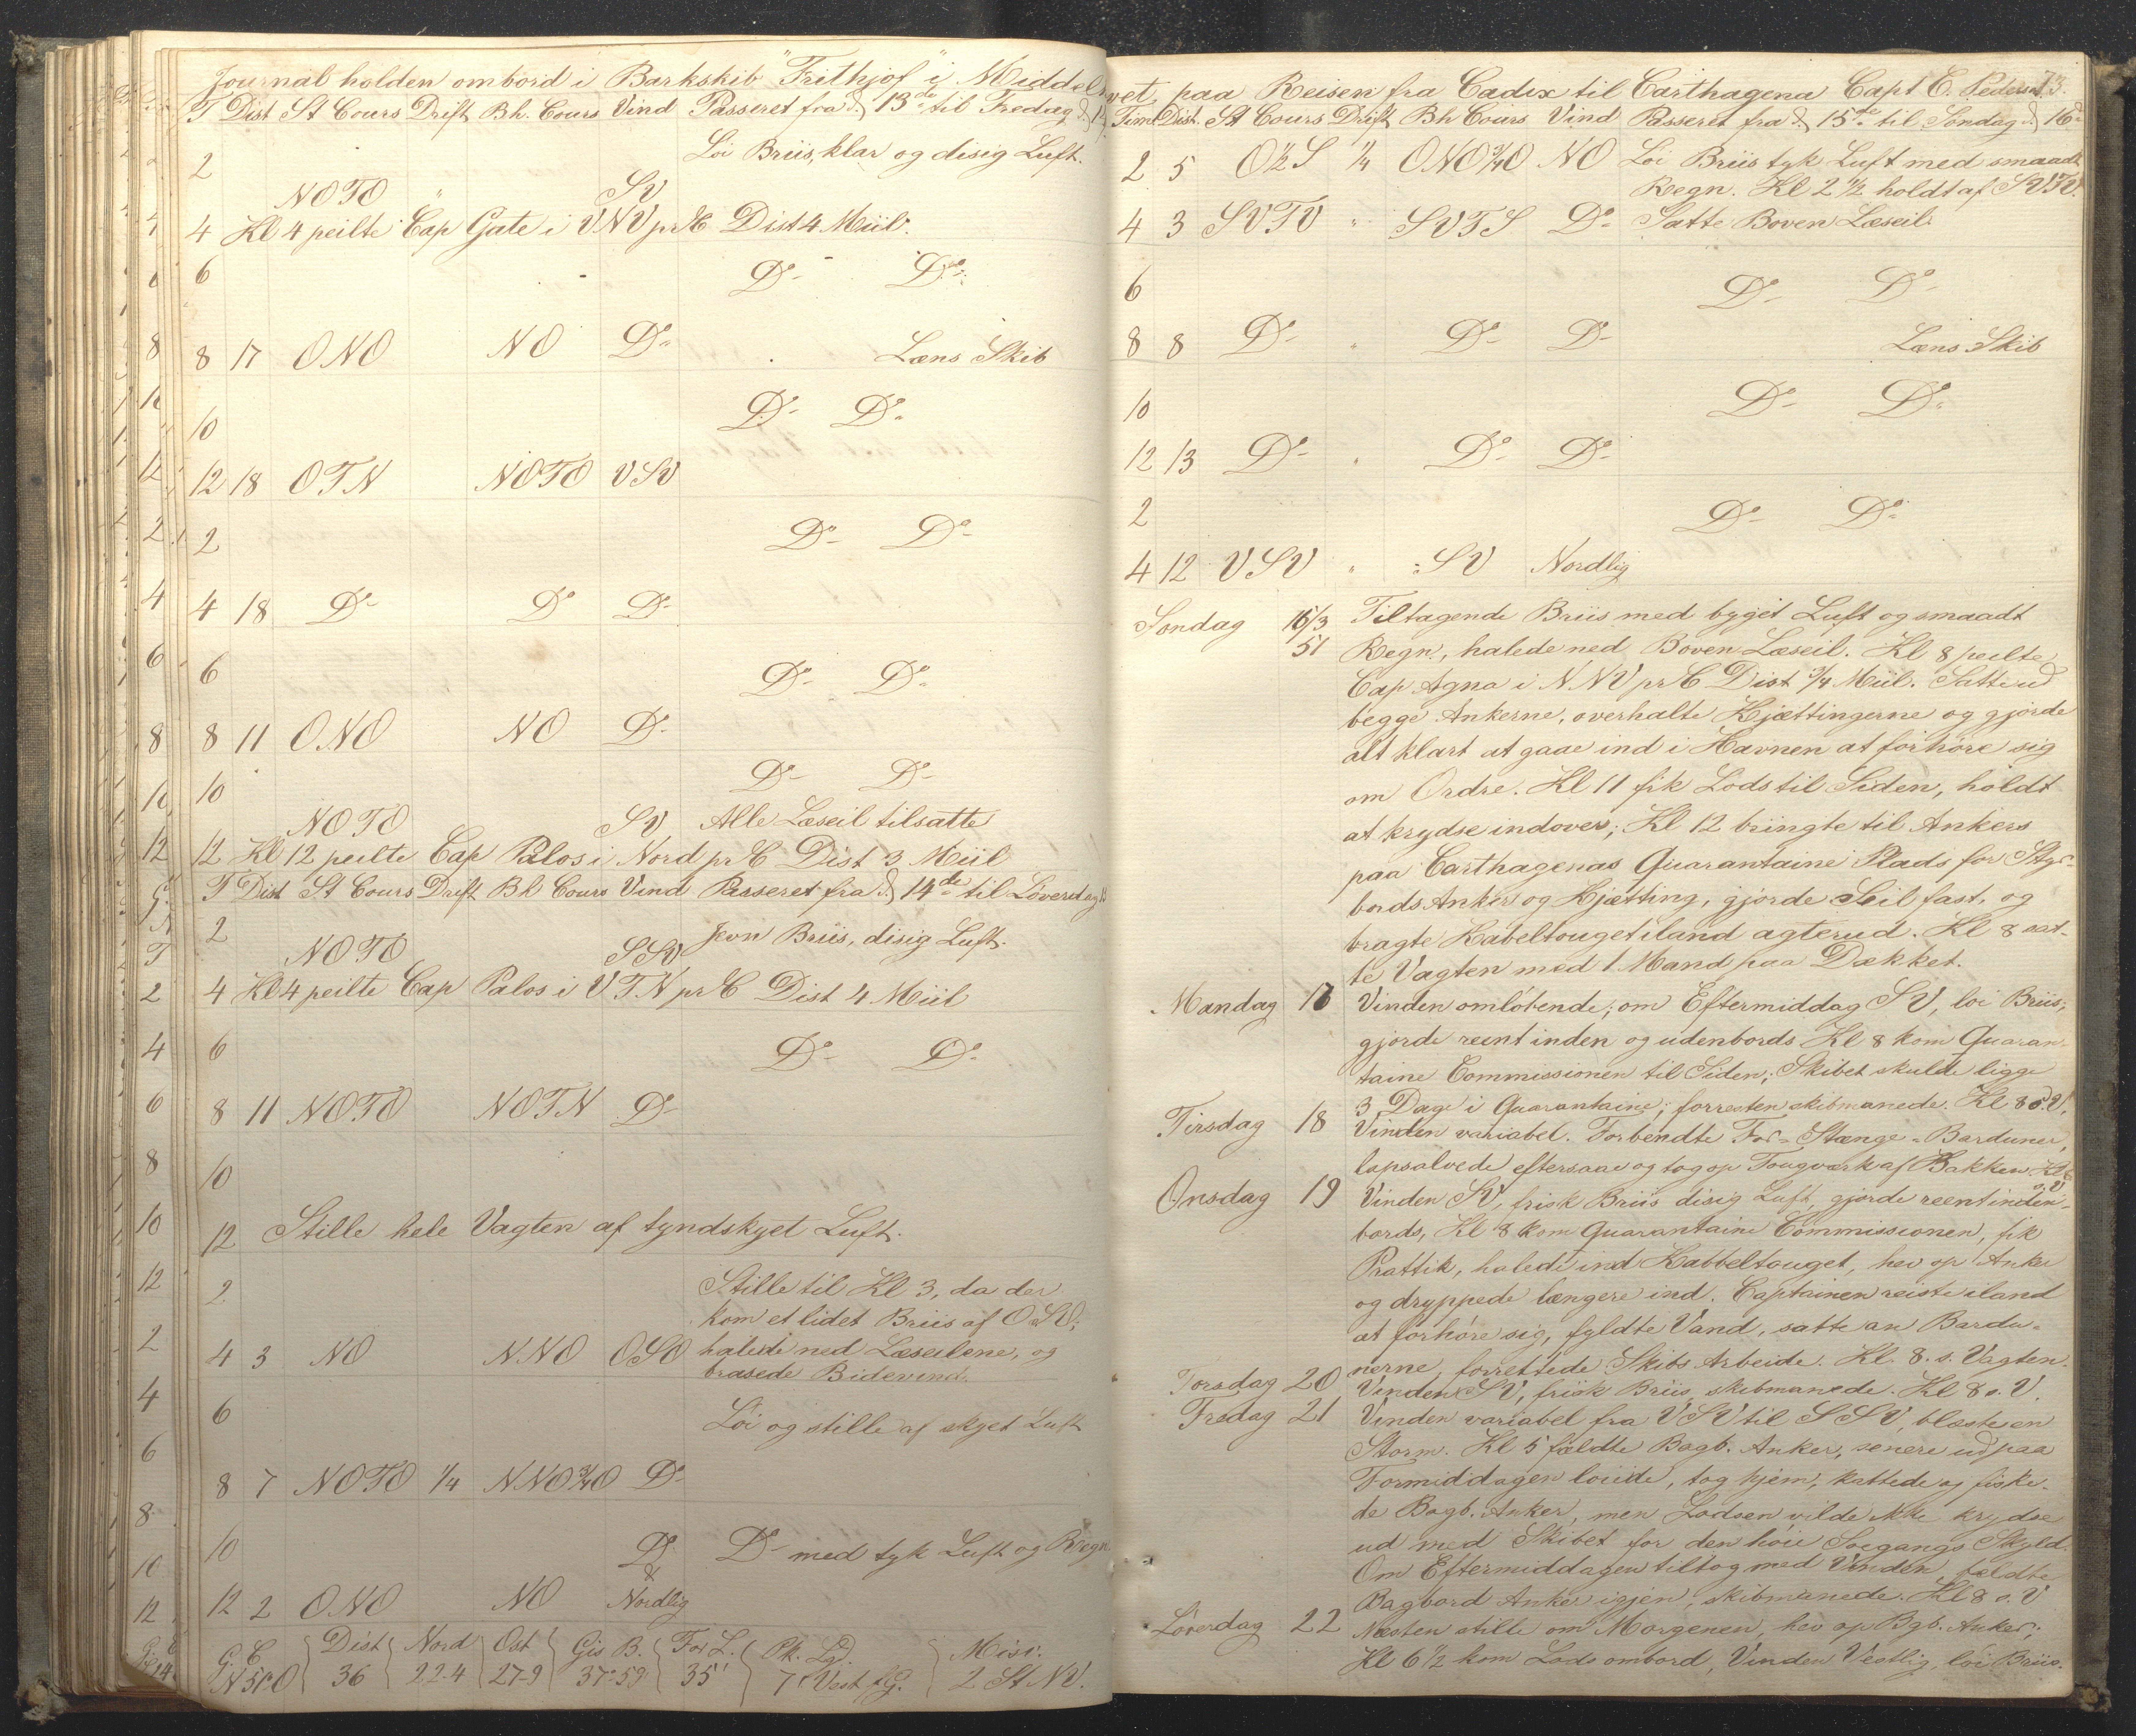 Journal holden ombord i Barkskib "Frithjof" i Middel
T Dist St Cours Drift Bh. Cours Vind Passeret fra d. 13de til Fredag d.
2 Löi Briis, klar og disig Luft.
NOTO " SV
4 Kl 4 peilte Cap Gate i VNV pr C Dist 4 Miil.
6 Do Do
8 17 ONO NO Do Læns Skib
10 Do Do
12 18 OTN NOTO VSV
2 Do Do
4 18 Do Do Do
6 Do Do
8 11 ONO NO Do
10 Do Do
NOTO SV Alle Læseil tilsatte
12 Kl 12 peilte Cap Palos i Nord pr C Dist 3 Miil
T Dist St Cours Drift Bh Cours Vind Passeret fra d. 14de til Löverdag
2 Jevn Briis, disig Luft.
NOTO SSV
4 Kl 4 peilte Cap Palos i VTN pr C Dist 4 Miil
6 Do Do
8 11 NOTO NOTN Do
10
12 Stille hele Vagten af tyndskyet Luft.
2 Stille til Kl 3, da der
kom et lidet Briis af OSO;
4 3 NO NNO OSO halede ned Læseilene, og
brasede Bidevind.
6 Löi og stille af skyet Luft
8 7 NOTO 1/4 NNO 3/4 O Do
10 Do Do med tyk Luft og Regn
&
12 2 ONO NO Nordlig
G. C Dist Nord Ost Gis B. For L. Pk. Ld. Misv.
N 51° O 36 22-4 27-9 37°59' 35' 7' Vest f G. 2 St NV.
vet, paa Reisen fra Cadix til Carthagena Capt E. Pedersen 73.
Time Dist. St Cours Drift Bh Cours Vind Passeret fra d. 15de til Söndag d. 16d
2 5 O 1/2 S 1/4 ONO 3/4 O NO Löi Briis tyk Luft med smaadt
Regn. Kl 2 1/2 holdt af SVTV.
4 3 SVTV " SVTS Do Satte Boven Læseil.
6 Do Do
8 8 Do " Do Do Læns Skib
10 Do Do
12 13 Do " Do Do
2 Do Do
4 12 VSV " SV Nordlig
Söndag 16/3 Tiltagende Briis med byget Luft og smaadt
51 Regn, halede ned Boven Læseil. Kl 8 peilte
Cap Agna i NNV pr C Dist 3/4 Miil. Satte ud
begge Ankerne, overhalte Kjættingerne og gjorde
alt klart at gaae ind i Havnen at forhöre sig
om Ordre. Kl 11 fik Lods til Siden, holdt
at krydse indover; Kl 12 bringte til Ankers
paa Carthagenas Quarantaine Plads for Styr-
bords Anker og Kjætting, gjorde Seil fast, og
bragte Kabeltouget iland agterud. Kl 8 sat-
te Vagten med 1 Mand paa Dækket.
Mandag 17 Vinden omlöbende; om Eftermiddag SV, löi Briis;
gjorde reent inden og udenbords Kl 8 kom Quaran-
taine Commissionen til Siden; Skibet skulde ligge
3 Dage i Quarantaine; forresten skibmanede. Kl 8 s. V.
Tirsdag 18 Vinden variabel. Forbendte For-Stænge-Barduner,
lapsalvede eftersaae og tog op Tougværk af Bakken. Kl 8
s. V
Onsdag 19 Vinden SV, frisk Briis disig Luft, gjorde reent inden-
bords, Kl 8 kom Quarantaine Commissionen, fik
Prattik, halede ind Kabbeltouget, hev op Anker
og dryppede længere ind. Captainen reiste iland
at forhöre sig, fyldte Vand, satte an Bardu-
nerne, forrettede Skibs Arbeide. Kl. 8. s. Vagten.
Torsdag 20 Vinden SV, frisk Briis, skibmanede. Kl 8 s. V.
Fredag 21 Vinden variabel fra VSV til SSV, blæste en
Storm. Kl 5 fældte Bagb. Anker, senere ud paa
Formiddagen löiede, tog hjem, kattede og fiske-
de Bagb. Anker, men Lodsen vilde ikke krydse
ud med Skibet for den höie Soegangs Skyld.
Om Eftermiddagen tiltog med Vinden, fældte
Bagbord Anker igjen, skibmanede. Kl 8 s. V
Löverdag 22 Næsten stille om Morgenen, hev op Bgb. Anker;
Kl 6 1/2 kom Lods ombord, Vinden Vestlig, löi Briis.